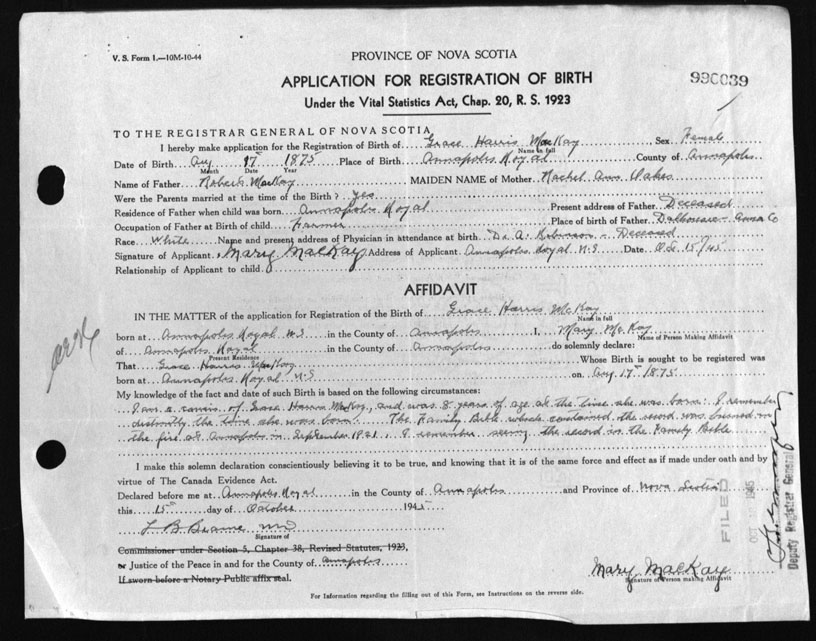 V. S. Form 1.—10M-10-44
PROVINCE OF NOVA SCOTIA
APPLICATION FOR REGISTRATION OF BIRTH
990039
Under the Vital Statistics Act, Chap. 20, R. S. 1923
TO THE REGISTRAR GENERAL OF NOVA SCOTIA,
I hereby make application for the Registration of Birth of Grace Harris MacKay Sex Female
Name in full
Date of Birth Aug 17th 1875 Place of Birth Annapolis Royal County of Annapolis
Month Date Year
Name of Father Robert MacKay MAIDEN NAME of Mother Rachel Ann Oakes
Were the Parents married at the time of the Birth? yes
Residence of Father when child was born Annapolis Royal Present address of Father Deceased
Occupation of Father at Birth of child Farmer Place of birth of Father Dalhousie - Anna Co
Race White Name and present address of Physician in attendance at birth Dr A. Robinson - Deceased
Signature of Applicant Mary MacKay Address of Applicant Annapolis Royal N.S Date Oct 15/45
Relationship of Applicant to child
AFFIDAVIT
IN THE MATTER of the application for Registration of the Birth of Grace Harris McKay
Name in full
born at Annapolis Royal N.S in the County of Annapolis I, Mary McKay
Name of Person Making Affidavit
of Annapolis Royal in the County of Annapolis do solemnly declare:
Present Residence
That Grace Harris MacKay Whose Birth is sought to be registered was
born at Annapolis Royal N.S on Aug 17th 1875
My knowledge of the fact and date of such Birth is based on the following circumstances:
I am a cousin of Grace Harris MacKay, and was 8 years of age at the time she was born. I remember
distinctly the time she was born. The Family Bible which contained the record was burned in
the fire at Annapolis in September 1921. I remember seeing the record in the Family Bible
I make this solemn declaration conscientiously believing it to be true, and knowing that it is of the same force and effect as if made under oath and by
virtue of The Canada Evidence Act.
Declared before me at Annapolis Royal in the County of Annapolis and Province of Nova Scotia
this 15th day of October 1945
Signature of
Commissioner under Section 5, Chapter 38, Revised Statutes, 1923,
or Justice of the Peace in and for the County of Annapolis
If sworn before a Notary Public affix seal.
Mary MacKay
Signature of Person making Affidavit
For Information regarding the filling out of this Form, see Instructions on the reverse side.
FILED
OCT 1945
Deputy Registrar General